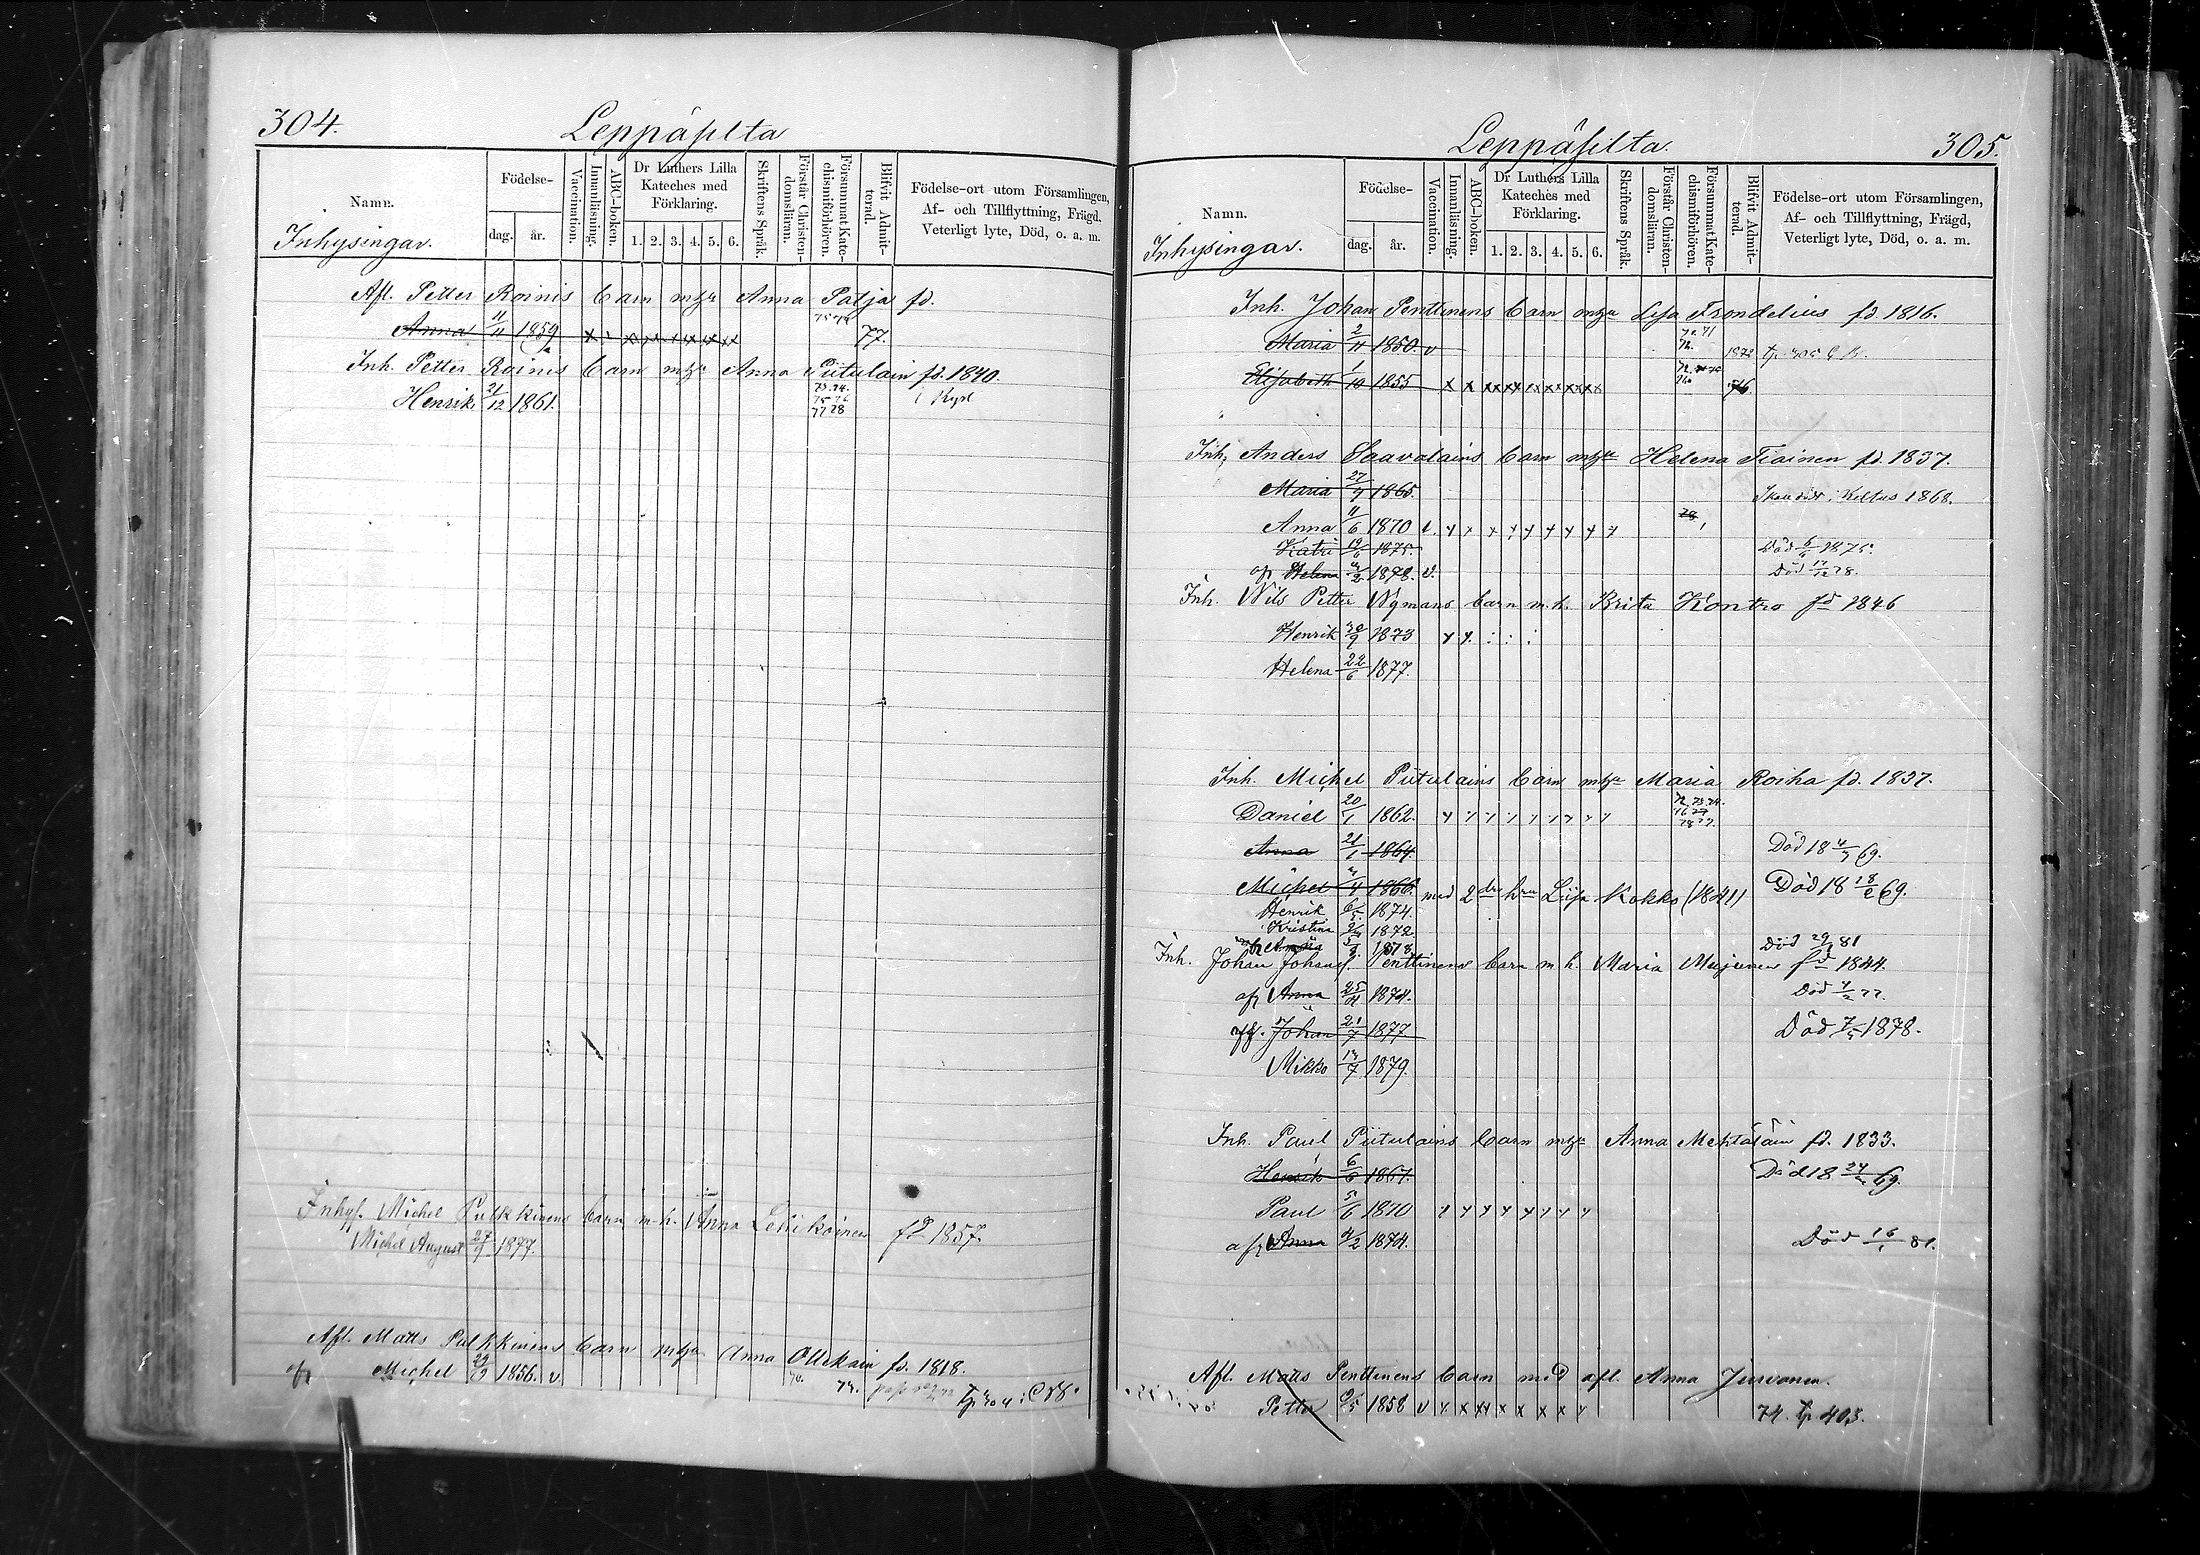 304.
Leppäsilta
Namn.
Inhysingar.
Födelse-
dag.
år.
Vaccination.
Innanläsning.
ABC-boken.
Dr Luthers Lilla
Kateches med
Förklaring.
1. 2. 3. 4. 5. 6.
Skriftens Språk.
Förstår Christen-
domsläran.
Försummat Kate-
chismiförhören.
Blifvit Admit-
terad.
Födelse-ort utom Församlingen,
Af- och Tillflyttning, Frägd,
Veterligt lyte, Död, o. a. m.
Afl. Petter Roinis barn m hu Anna Patja fd.
75 74
Anna 11/11 1859 77.
Inh. Petter Roinis barn m hu Anna Piitulain fd. 1840.
Henrik 21/12 1861. 73. 74. 75 76 77 78
Inhys. Michel Pulkkinens barn m. h. Anna Leiikoinen fd 1857.
Michel August 27/9 1877.
Afl. Matts Pulkkinens barn m hu Anna Ollikain fd. 1818.
Michel 29/9 1856. v
305.
Leppäsilta.
Namn.
Inhysingar.
Födelse-
dag.
år.
Vaccination.
Innanläsning.
ABC-boken.
Dr Luthers Lilla
Kateches med
Förklaring.
1. 2. 3. 4. 5. 6.
Skriftens Språk.
Förstår Christen-
domsläran.
Försummat Kate-
chismiförhören.
Blifvit Admit-
terad.
Födelse-ort utom Församlingen,
Af- och Tillflyttning, Frägd,
Veterligt lyte, Död, o. a. m.
Inh. Johan Penttinens barn m hu Lisa Frondelius fd. 1816.
Maria 2/11 1850. v
Elisabeth 1/10 1855 x x x x x x x x x 76.
Inh. Anders Saavalains barn m hu Helena Tiainen fd. 1837.
Maria 27/9 1865. Keltus 1868.
Anna 11/6 1870
Katri 19/6 1875. Död 1875.
af Helena 1878. v. Död 17/12 78.
Inh. Nils Petter Nymans barn m. h. Brita Kontro fd 1846
Henrik 30/9 1873
Helena 22/6 1877.
Inh. Michel Piitulains barn m hu Maria Roiha fd. 1837.
Daniel 20/1 1862.
Anna 21/1 1864 Död 18 4/3 69.
Michel 1866. med 2dra hun Liisa Kokko (1841) Död 18 18/2 69.
Henrik 6/5 1874.
Kristina 1872.
Anna 1878 Död 29/ 81
Inh. Johan Johanss. Penttinens barn m h. Maria Mujunen fd 1844.
af Anna 25/11 1874. Död 77.
af. Johan 21/7 1877 Död 7/5 1878.
Mikko 13/7 1879.
Inh. Paul Piitulains barn m hu Anna Mehtäläin fd. 1833.
Henrik 6/6 1867. Död 18 24/ 69.
Paul 5/6 1870
af Anna 4/2 1874. Död 16/1 81.
Afl. Matts Penttinens barn med afl. Anna Jurvanen.
Petter 9/5 1858 v 74. Tp 403.